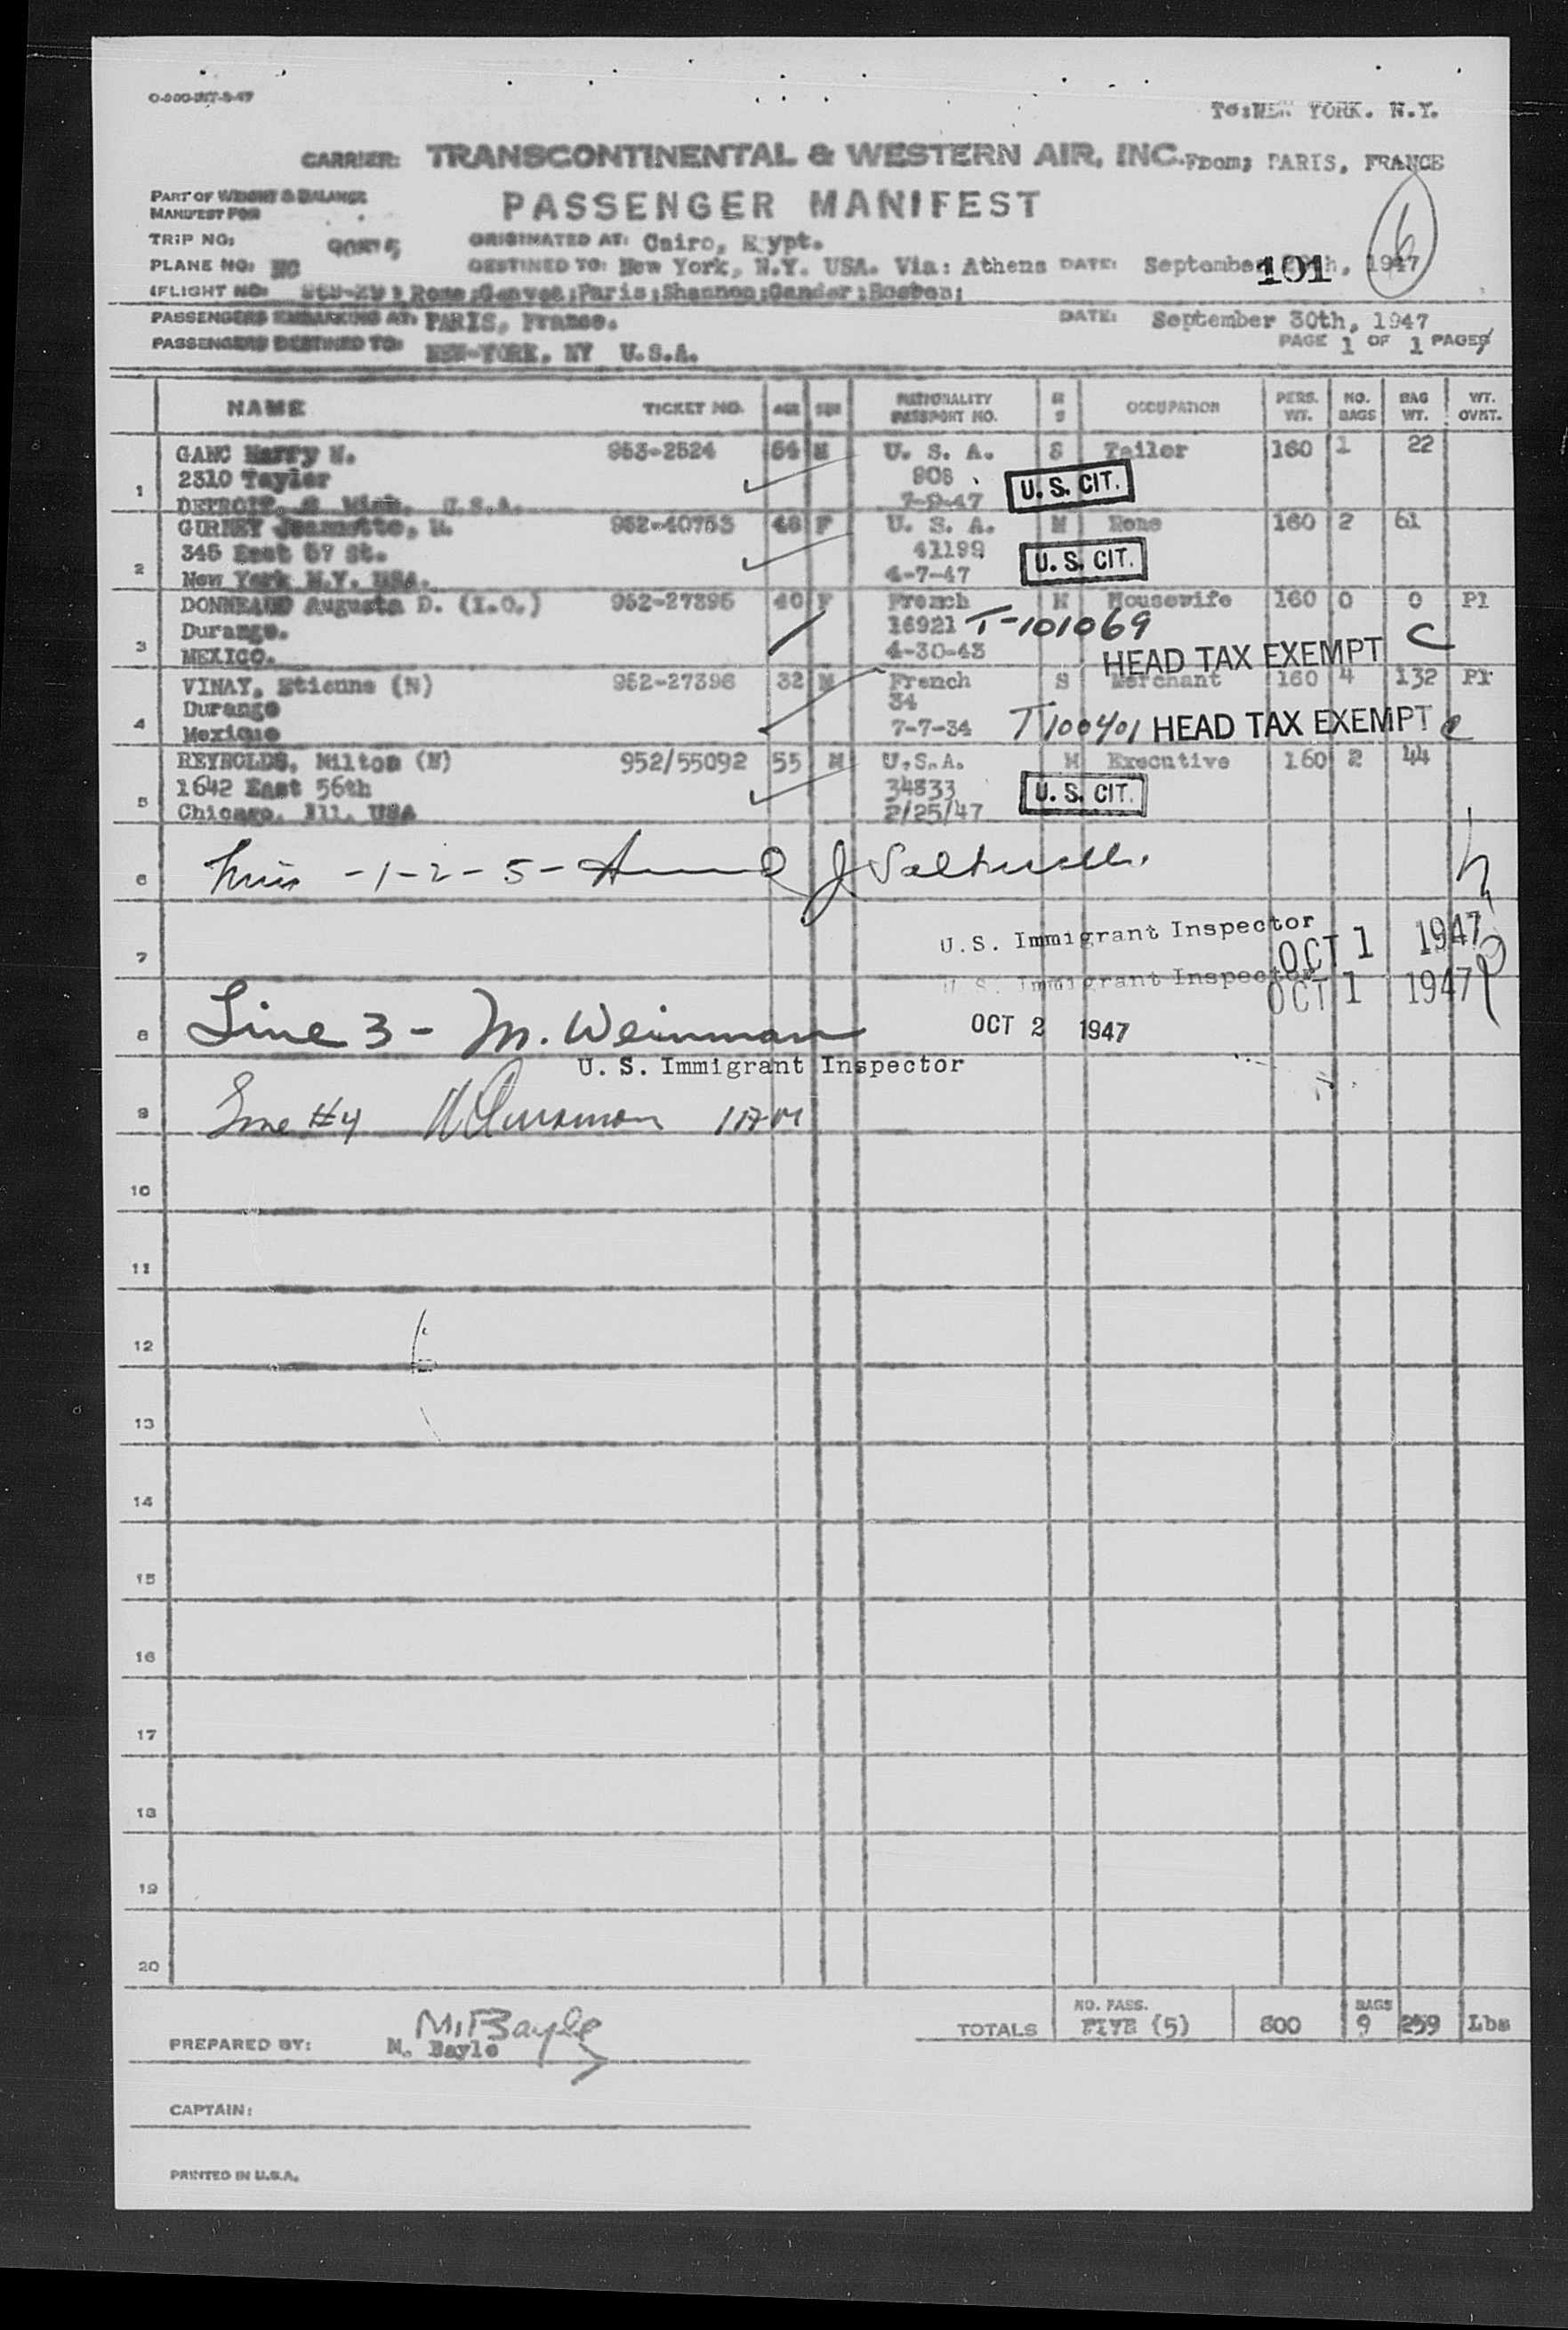 TO:NEW YORK. N.Y.
CARRIER: TRANSCONTINENTAL & WESTERN AIR, INC. From; PARIS, FRANCE
PART OF WEIGHT & BALANCE
MANIFEST FOR
PASSENGER MANIFEST
TRIP NO:
ORIGINATED AT: Cairo, Egypt.
PLANE NO: NC
DESTINED TO: New York, N.Y. USA. Via: Athens DATE: September 1947
101
6
(FLIGHT NO: Rome;Geneva;Paris;Shannon;Gander;Boston;
PASSENGERS EMBARKING AT: PARIS, France. DATE: September 30th, 1947
PASSENGERS DESTINED TO: NEW-YORK, NY U.S.A. PAGE 1 OF 1 PAGES
NAME TICKET NO. AGE SEX NATIONALITY PASSPORT NO. M S OCCUPATION PERS. WT. NO. BAGS BAG WT. WT. OVNT.
GANC Harry N. 953-2524 54 M U. S. A. S Tailor 160 1 22
2310 Taylor 908
1 DETROIT, Mich. U.S.A. 7-9-47 U. S. CIT.
GURNEY Jeannette, M. 952-40753 48 F U. S. A. M None 160 2 61
345 East 57 St. 41199
2 New York N.Y. USA. 4-7-47 U. S. CIT.
DONNEAUD Augusta D. (I.O.) 952-27395 40 F French M Housewife 160 0 0 P1
Durango. 16921 T-101069
3 MEXICO. 4-30-43 HEAD TAX EXEMPT C
VINAY, Etienne (N) 952-27396 32 M French S Merchant 160 4 132 P1
Durango 34
4 Mexique 7-7-34 T100401 HEAD TAX EXEMPT C
REYNOLDS, Milton (N) 952/55092 55 M U.S.A. M Executive 160 2 44
1642 East 56th 34833
5 Chicago, Ill. USA 2/25/47 U. S. CIT.
6 -1-2-5-
U.S. Immigrant Inspector OCT 1 1947
7
U. S. Immigrant Inspector OCT 1 1947
8 Line 3 - M. Weinman OCT 2 1947
U. S. Immigrant Inspector
9 Line #4
10
11
12
13
14
15
16
17
18
19
20
TOTALS NO. PASS. FIVE (5) 800 BAGS 9 259 Lbs
M. Bayle
PREPARED BY: M. Bayle
CAPTAIN:
PRINTED IN U.S.A.